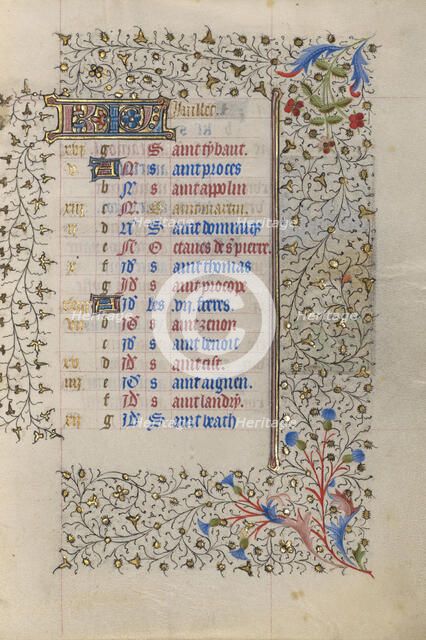 KL Juillet.
xvi g Saint tybaut.
v A N s aint proces
b N s aint appolin
xiii c N s aint martin.
d N s aint dominique
e N O ctaues de s pierre.
x f Jd s aint thomas
g Jd s aint procope
A Jd les .vii. freres.
b Jd s aint zenon
c Jd s aint benoit
xv d Jd s aint
iiii e Jd s aint aignen.
f Jd s aint landry.
xii g Jd S aint
Heritage
Heritage
Heritage
Heritage
Heritage
Heritage